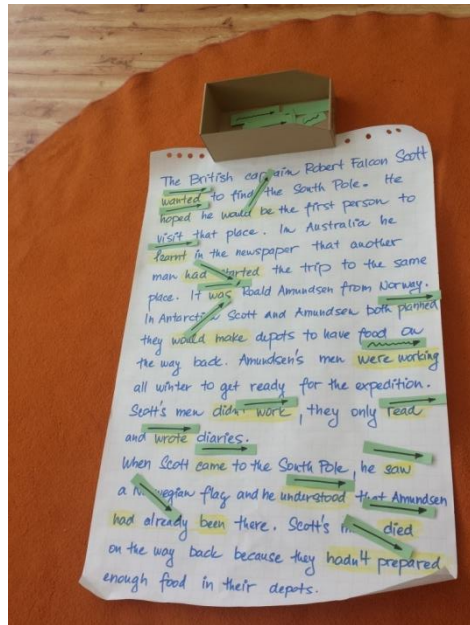 The British captain Robert Falcon Scott
wanted to find the South Pole. He
hoped he would be the first person to
visit that place. In Australia he
learnt in the newspaper that another
man had started the trip to the same
place. It was Roald Amundsen from Norway.
In Antarctic Scott and Amundsen both planned
they would make depots to have food on
the way back. Amundsen's men were working
all winter to get ready for the expedition.
Scott's men didn't work, they only read
and wrote diaries.
When Scott came to the South Pole, he saw
a Norwegian flag and he understood that Amundsen
had already been there. Scott's died
on the way back because they hadn't prepared
enough food in their depots.